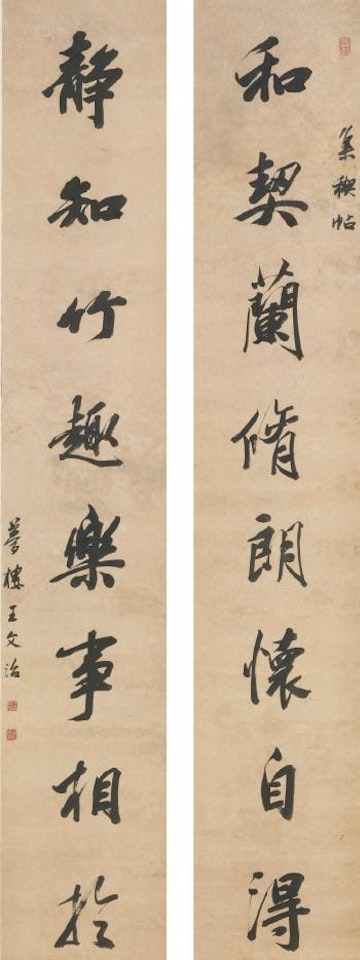 集禊帖
和契蘭脩朗懷自得
靜知竹趣樂事相於
夢樓王文治